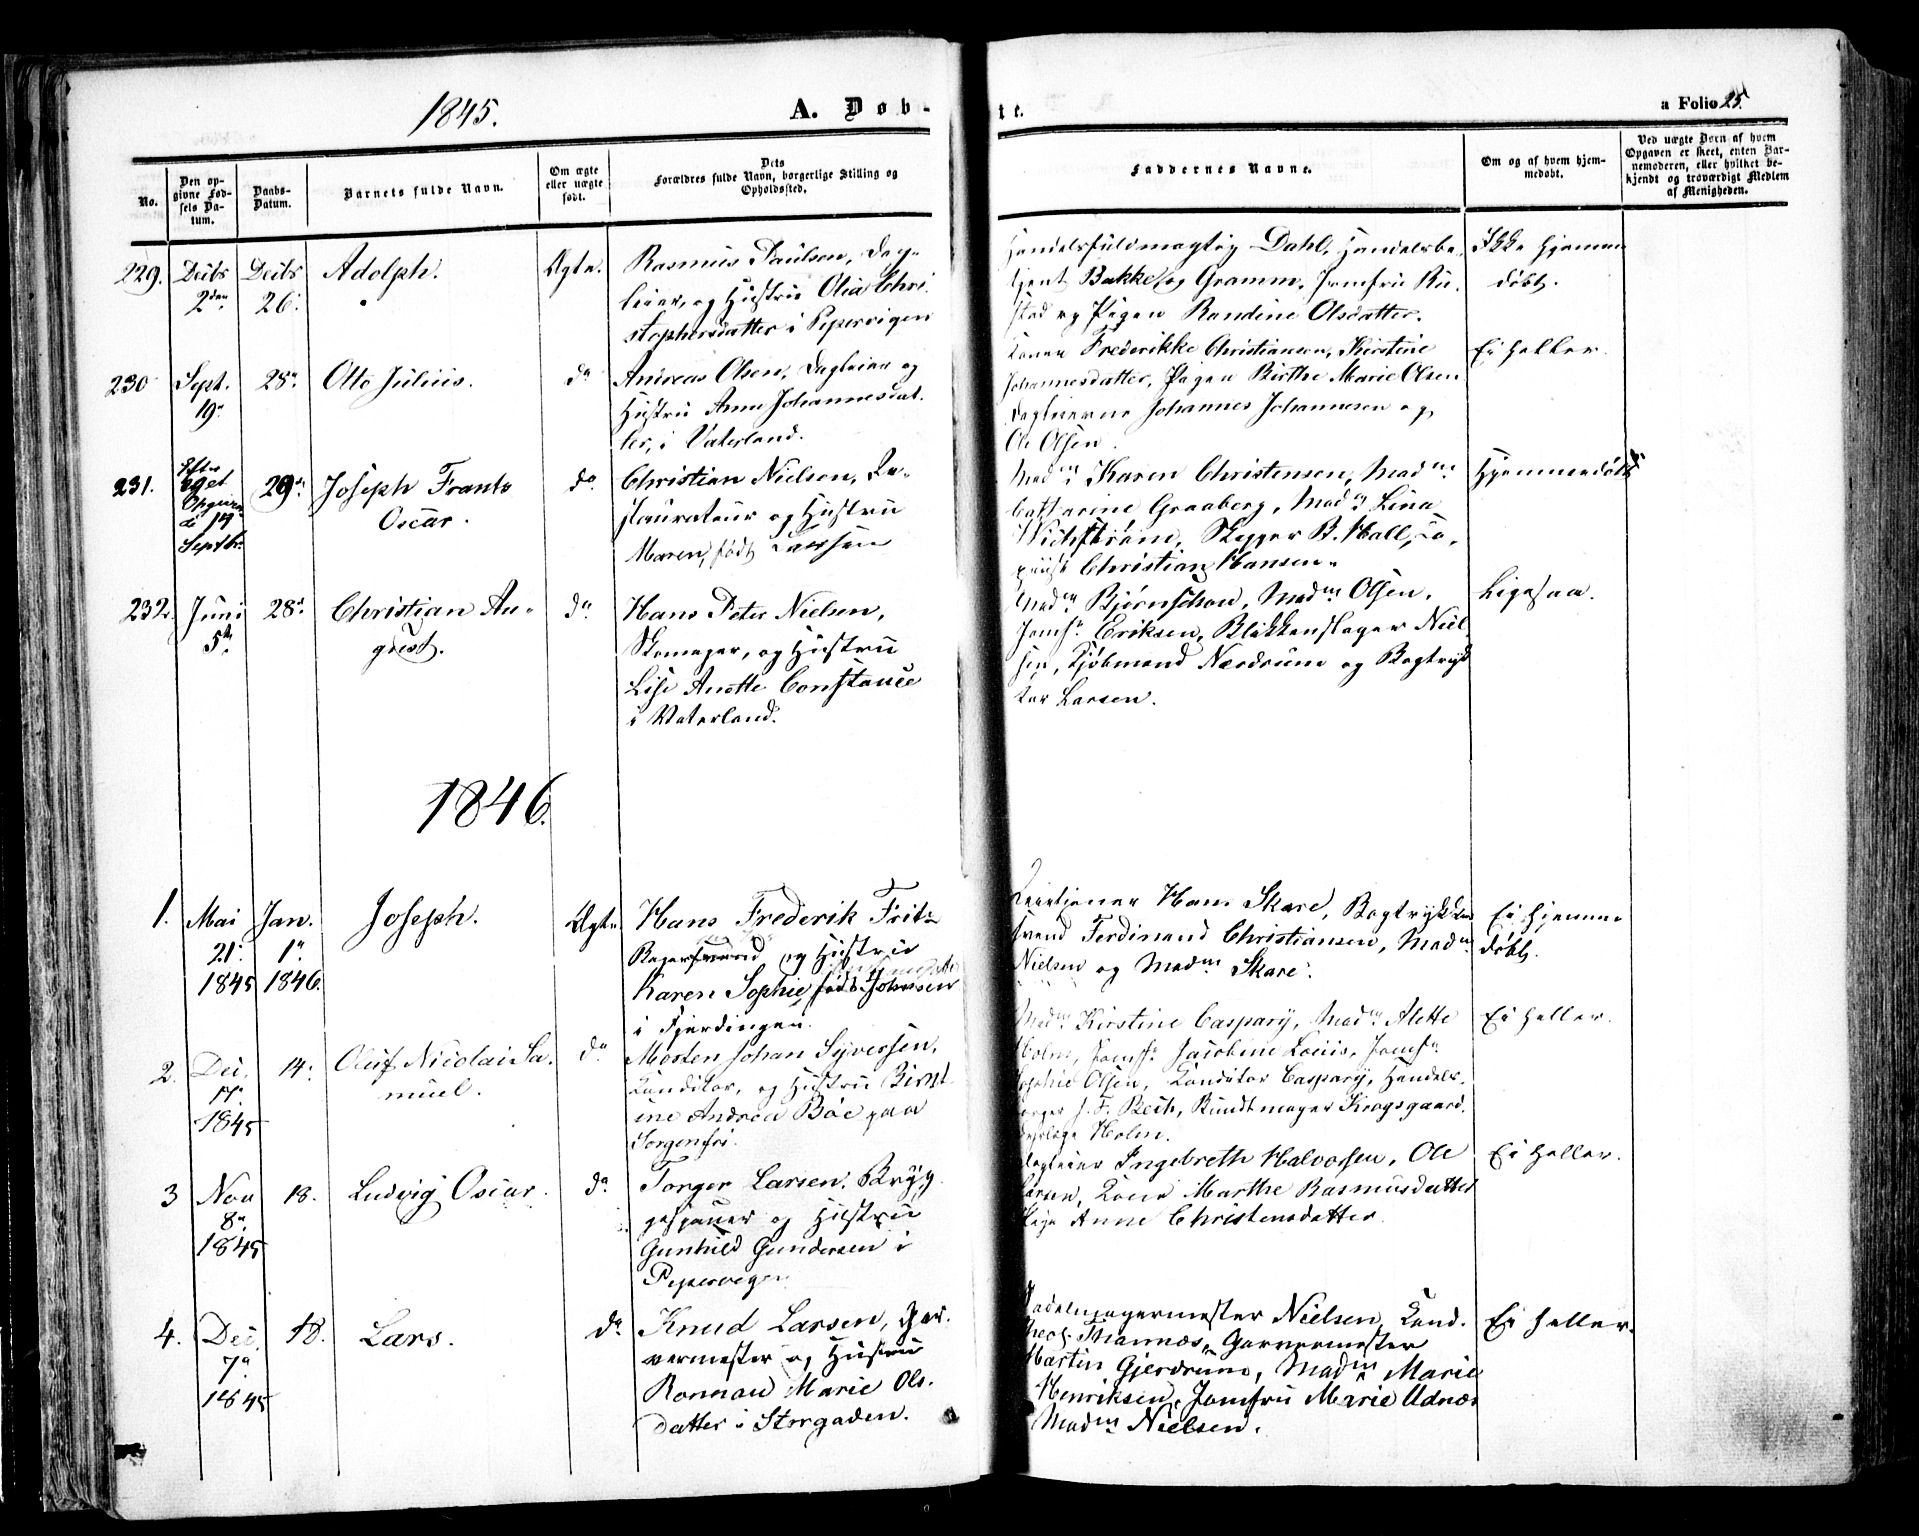 1845.
A. Døb-
te.
a Folio 25.
No.
Den op-
givne Fød-
sels Da-
tum.
Daabs-
Datum.
Barnets fulde Navn.
Om ægte
eller uægte
født.
Dets
Forældres fulde Navn, borgerlige Stilling og
Opholdssted.
Faddernes Navne.
Om og af hvem hjem-
medøbt.
Ved uægte Børn af hvem
Opgaven er skeet, enten Bar-
nemoderen, eller hvilket be-
kjendt og troværdigt Medlem
af Menigheden.
229.
Decbr
2den
Decbr
26.
Adolph.
Ægte.
Rasmus Paulsen, Dag-
leier, og Hustru Olia Chri-
stophersdatter i Pepervigen
Handelsfuldmægtig Dahl, Handelsbe-
tjent Bakke og Gramm, Jomfru Ru-
stad og Pigen Randine Olsdatter.
Ikke hjemme
døbt.
230
Sept.
19.
28.
Otto Julius.
do
Andreas Olsen, Dagleier og
Hustru Anne Johannesdat-
ter, i Vaterland.
Konen Frederikke Christiansen, Kirstine
Johannesdatter, Pigen Birthe Marie Olsen
Dagleierne Johannes Johannesen og
Ole Olsen.
Ei heller.
231.
Efter
eget
Opgiven
de 14
Septbr.
29.
Joseph Frants
Oscar.
do
Christian Nielsen, Re-
staurateur og Hustru
Maren, født Larsen
Madm Karen Christensen, Madm
Catharine Graaberg, Madm Lina
Wichstrøm, Skipper B. Hall, Ko-
piist Christian Hansen.
Hjemmedøbt
232.
Juni
5te
28.
Christian Au-
gust.
do
Hans Peter Nielsen,
Skomager, og Hustru
Lise Anette Constance
i Vaterland.
Madm Bjørnschou, Madm Olsen,
Jomfr Eriksen, Blikkenslager Niel-
sen, Kjøbmand Nordrum og Bogtryk
ker Larsen.
Ligesaa.
1846.
1.
Mai
21.
1845
Jan.
1.
1846.
Joseph.
Ægte.
Hans Frederik Fritz
Bagersvend og Hustru
Karen Sophie født Johnsen
i Fjerdingen.
Hans Skare, Bogtrykker
svend Ferdinand Christiansen, Madm
Nielsen og Madm Skare.
Ei hjemme
døbt.
2.
Dec.
17.
1845
14.
Oluf Nicolai Sa-
muel.
do
Morten Johan Syversen,
Konditor, og Hustru Bernt-
ine Andrea Bøe paa
Sorgenfri.
Madm Kirstine Caspary, Madm Alette
Holm, Jomfr Jacobine Louis, Jomfr
Sophie Olsen, Konditor Caspary, Handels-
borger J. F. Bech, Bundtmager Krogsgaard,
Holm.
Ei heller.
3
Nov
8.
1845
18.
Ludvig Oscar.
do
Torger Larsen, Bryg-
gesjauer og Hustru
Gunhild Gundersen i
Pepervigen
Dagleier Ingebreth Halvorsen, Ole
Larsen, Kone Marthe Rasmusdatter
Pige Anne Christensdatter.
Ei heller.
4.
Dec.
7.
1845
18.
Lars.
do
Knud Larsen, Gar-
vermester og Hustru
Ronnau Marie Ols-
datter i Storgaden.
Sadelmagermester Nielsen, Cand.
theol. Thannæs, Garvermester
Martin Gjerdrum, Madm Marie
Henriksen, Jomfru Marie Udnæs
Madm Nielsen.
Ei heller.